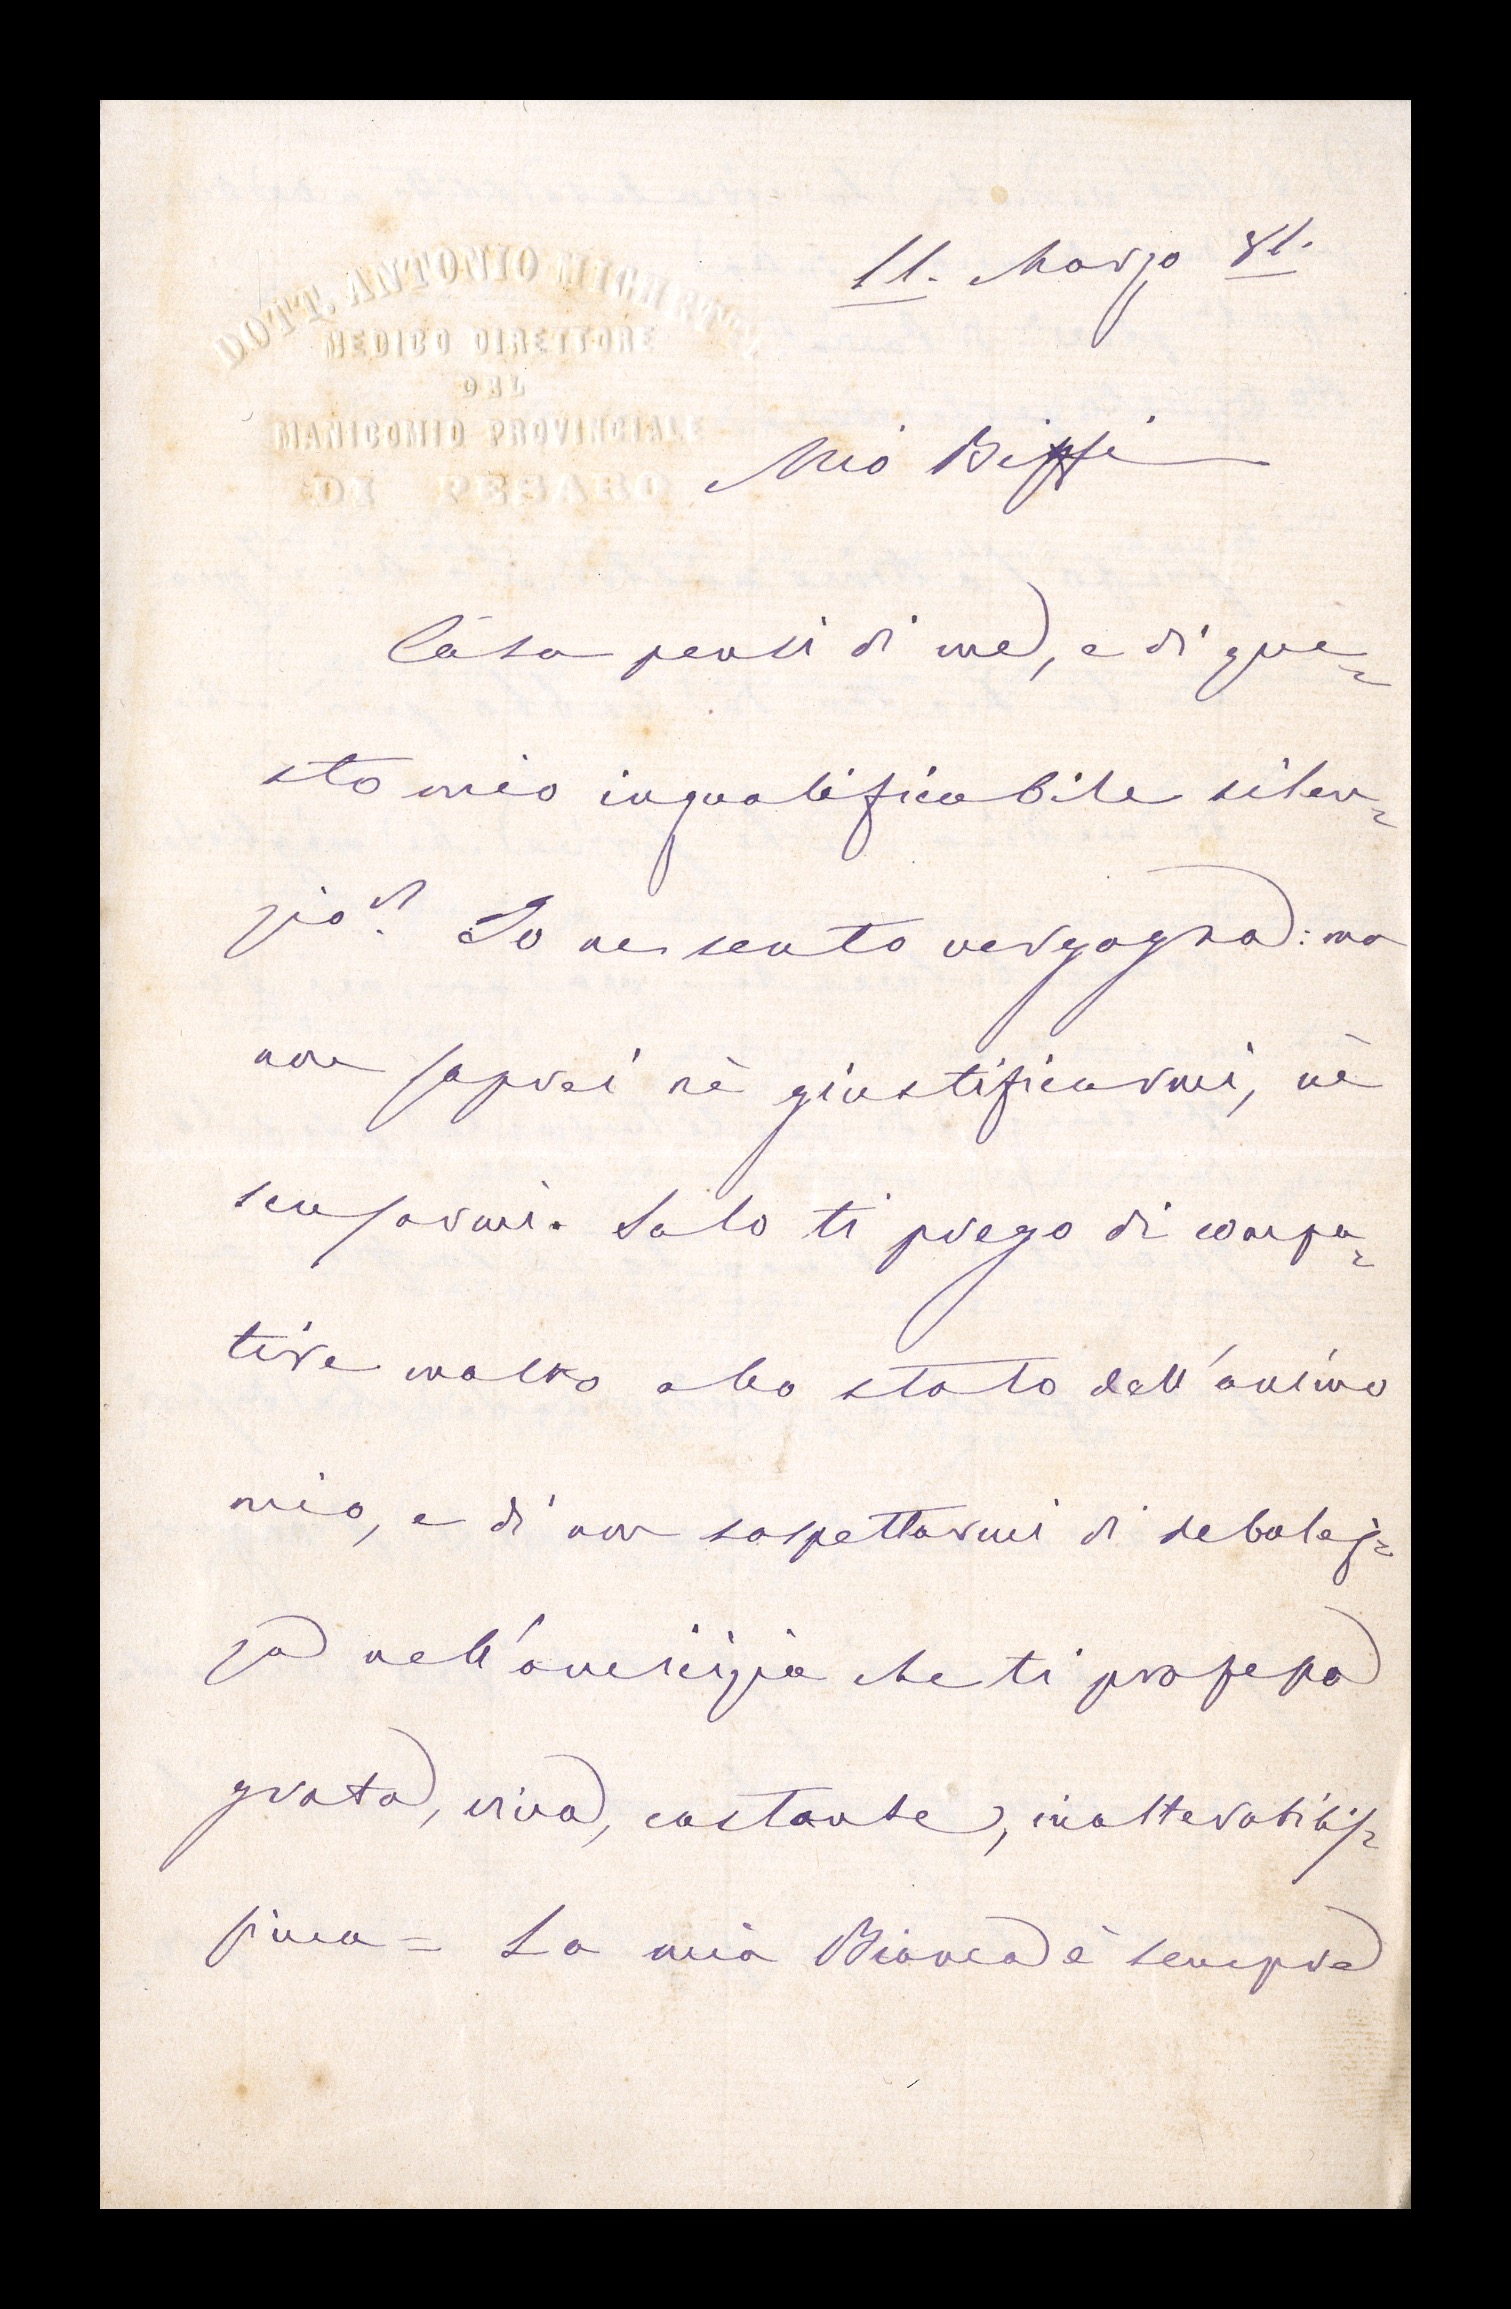 DOTT. ANTONIO MICHETTI
MEDICO DIRETTORE
DEL
MANICOMIO PROVINCIALE
DI PESARO
11. Marzo 81.
Mio Biffi
Cosa pensi di me, e di que=
sto mio inqualificabile silen=
zio? Io ne sento vergogna: ma
non saprei nè giustificarmi, nè
scusarmi. Solo ti prego di compa=
tire molto allo stato dell'animo
mio, e di non sospettarmi di debolez=
za nell'amicizia che ti professo
grata, viva, costante, inalterabilis=
sima = La mia Bianca è sempre